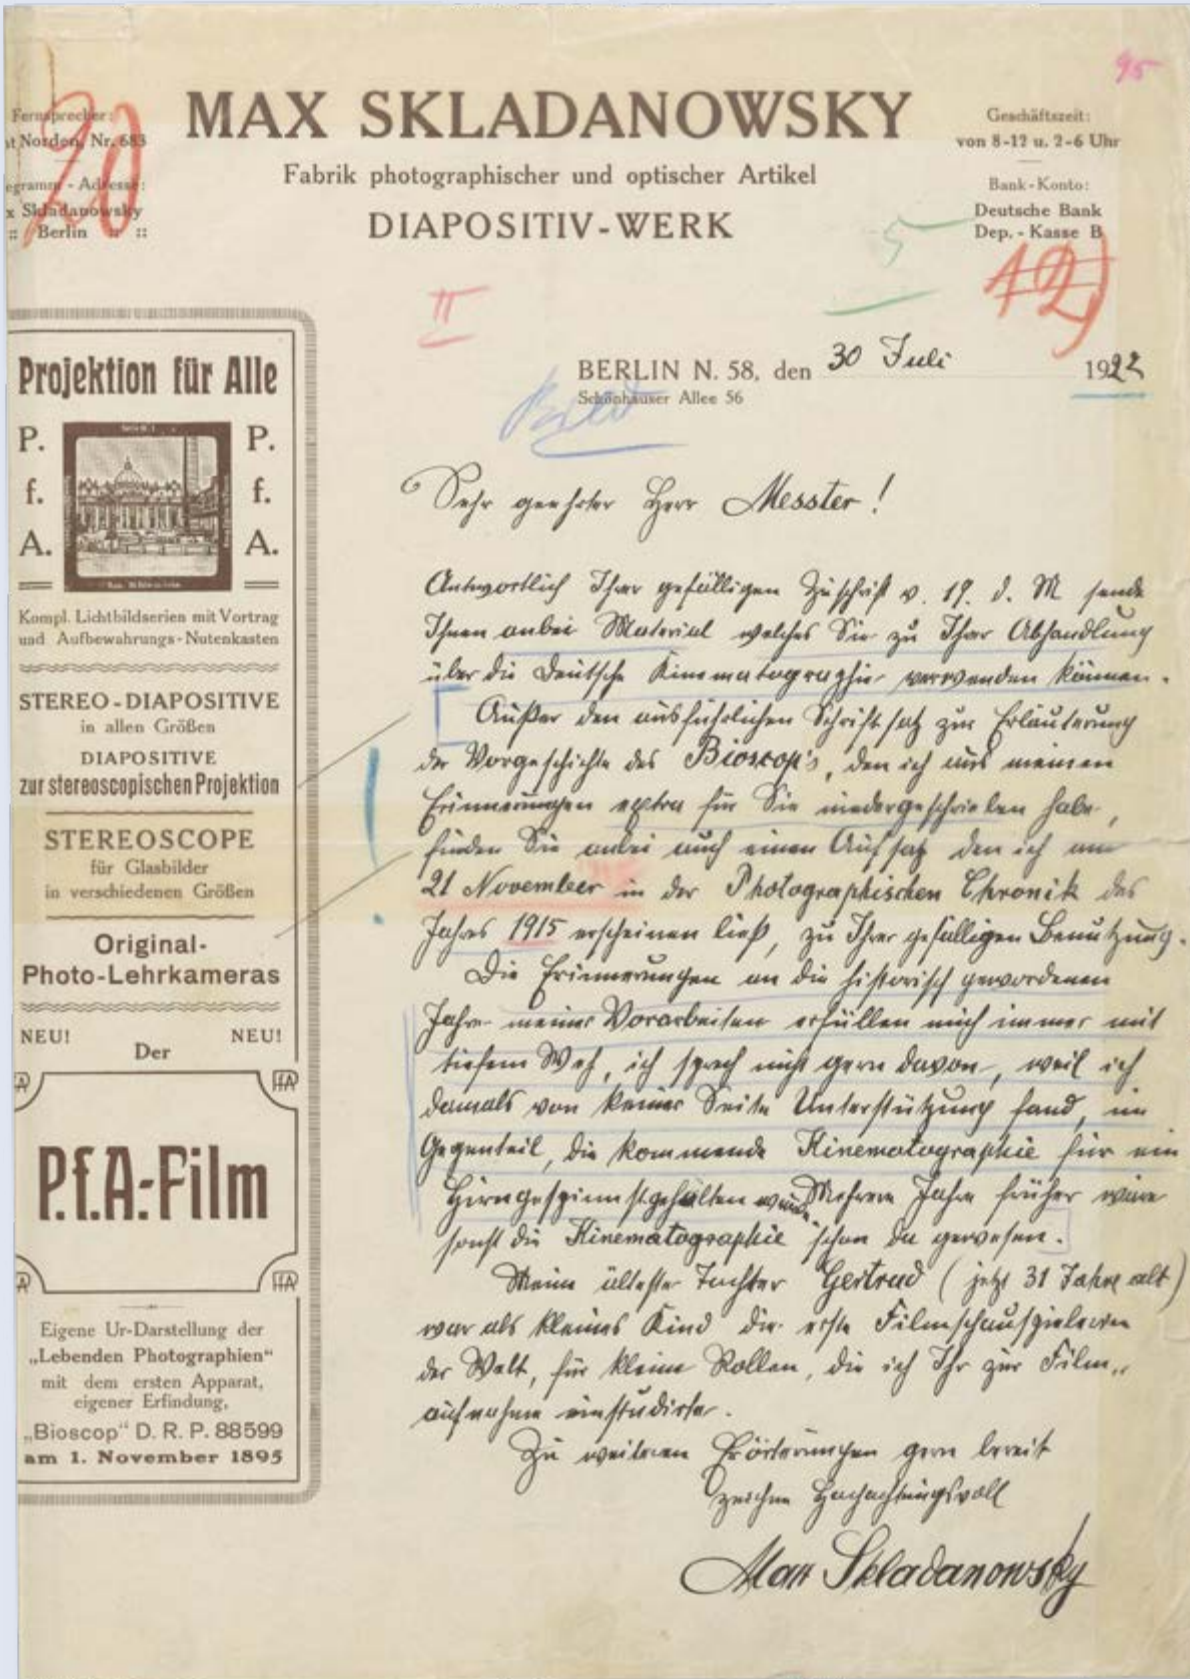 95
Fernsprecher:
t Norden, Nr. 683
egramm - Adresse:
x Skladanowsky
:: Berlin :: ::
20
MAX SKLADANOWSKY
Fabrik photographischer und optischer Artikel
DIAPOSITIV-WERK
Geschäftszeit:
von 8-12 u. 2-6 Uhr
Bank-Konto:
Deutsche Bank
Dep. - Kasse B
5
12)
II
BERLIN N. 58, den 30 Juli 1922
Schönhauser Allee 56
Bild
Projektion für Alle
P. P.
f. f.
A. A.
Kompl. Lichtbildserien mit Vortrag
und Aufbewahrungs-Nutenkasten
STEREO-DIAPOSITIVE
in allen Größen
DIAPOSITIVE
zur stereoscopischen Projektion
STEREOSCOPE
für Glasbilder
in verschiedenen Größen
Original-
Photo-Lehrkameras
NEU! NEU!
Der
P.f.A.-Film
Eigene Ur-Darstellung der
„Lebenden Photographien“
mit dem ersten Apparat,
eigener Erfindung,
„Bioscop“ D. R. P. 88599
am 1. November 1895
Sehr geehrter Herr Messter!
Antwortlich Ihrer gefälligen Zuschrift v. 19. d. M sende
Ihnen anbei Material welches Sie zu Ihrer Abhandlung
über die Deutsche Kinematographie verwenden können.
Außer den ausführlichen Schriftsatz zur Erläuterung
der Vorgeschichte des Bioscop's, den ich aus meinen
Erinnerungen extra für Sie niedergeschrieben habe,
finden Sie anbei auch einen Aufsatz den ich am
21 November in der Photographischen Chronik des
Jahres 1915 erscheinen ließ, zu Ihrer gefälligen Benutzung.
Die Erinnerungen an die historisch gewordenen
Jahre meiner Vorarbeiten erfüllen mich immer mit
tiefem Weh, ich sprach nicht gern davon, weil ich
damals von keiner Seite Unterstützung fand, im
Gegenteil, die kommende Kinematographie für ein
Hirngespinnst gehalten wurde. Mehrere Jahre früher wäre
sonst die Kinematographie schon da gewesen.
Meine älteste Tochter Gertrud (jetzt 31 Jahre alt)
war als kleines Kind die erste Filmschauspielerin
der Welt, für kleine Rollen, die ich Ihr zur Film-
aufnahme einstudirte.
Zu weiteren Erörterungen gern bereit
zeichne Hochachtungsvoll
Max Skladanowsky